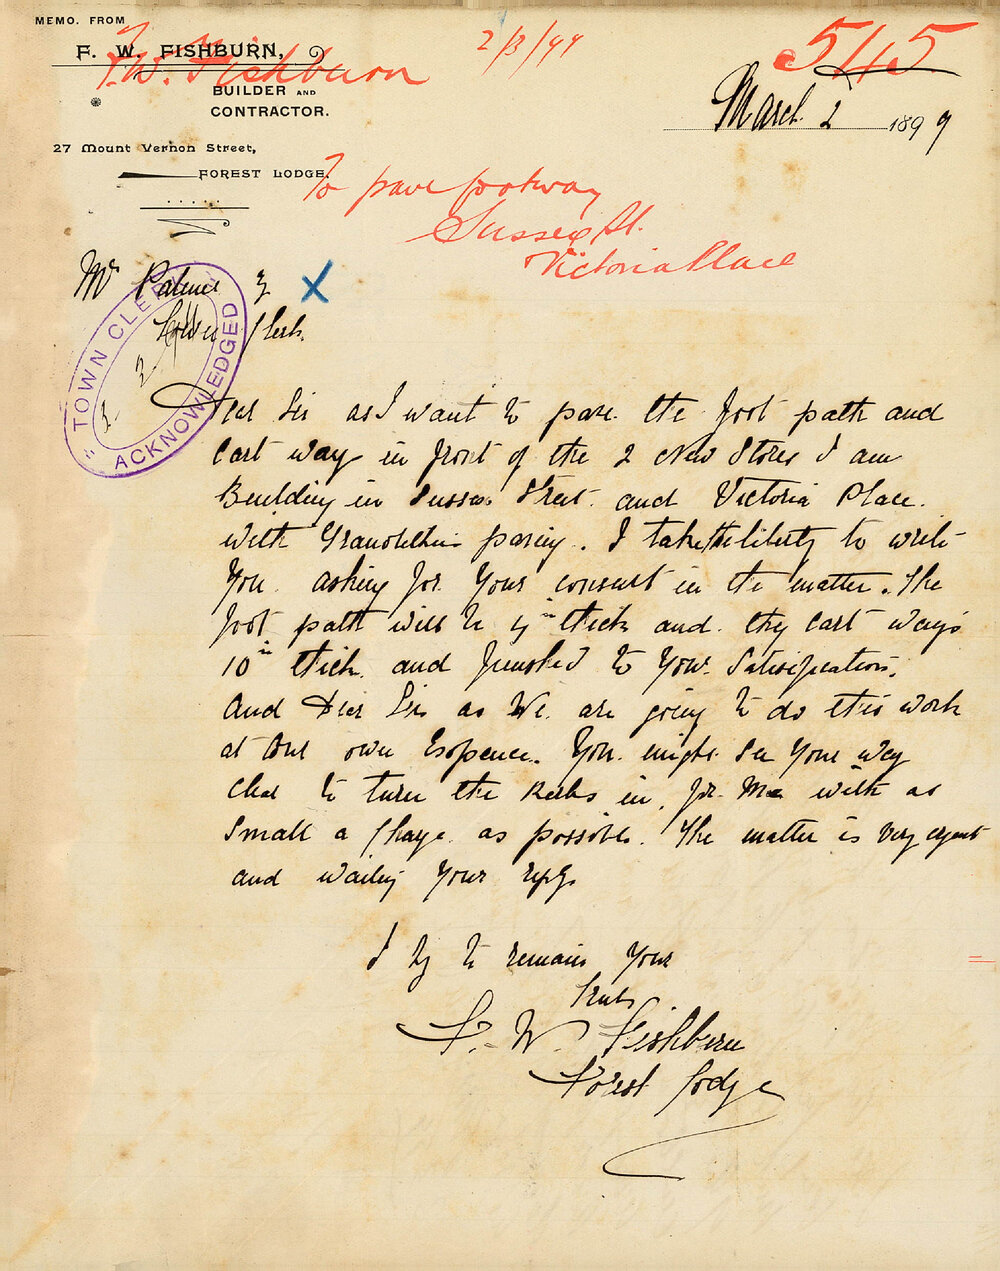 MEMO. FROM
F. W. FISHBURN,
F. W. Fishburn
BUILDER AND
CONTRACTOR.
27 Mount Vernon Street,
FOREST LODGE.
2/3/99
545
March 2 1899
To pave footway
Sussex St.
Victoria Place
Mr Palmer
Town Clerk.
X
TOWN CLERK
ACKNOWLEDGED
Dear Sir as I want to pave the Foot path and
Cart way in front of the 2 New Stores I am
Building in Sussex Street and Victoria Place.
with Granolithic paving. I take the liberty to write
You asking for Your consent in the matter. The
foot path will be 4in thick and the Cart ways
10in thick and finished to Your Satisification.
And Dear Sir as We are going to do this work
at Our own Exspence. You might see Your way
clear to turn the Kerbs in for Me with as
Small a Charge as possible. The matter is very urgent
and waiting Your reply.
I beg to remain Your
Truly
F. W. Fishburn
Forest Lodge